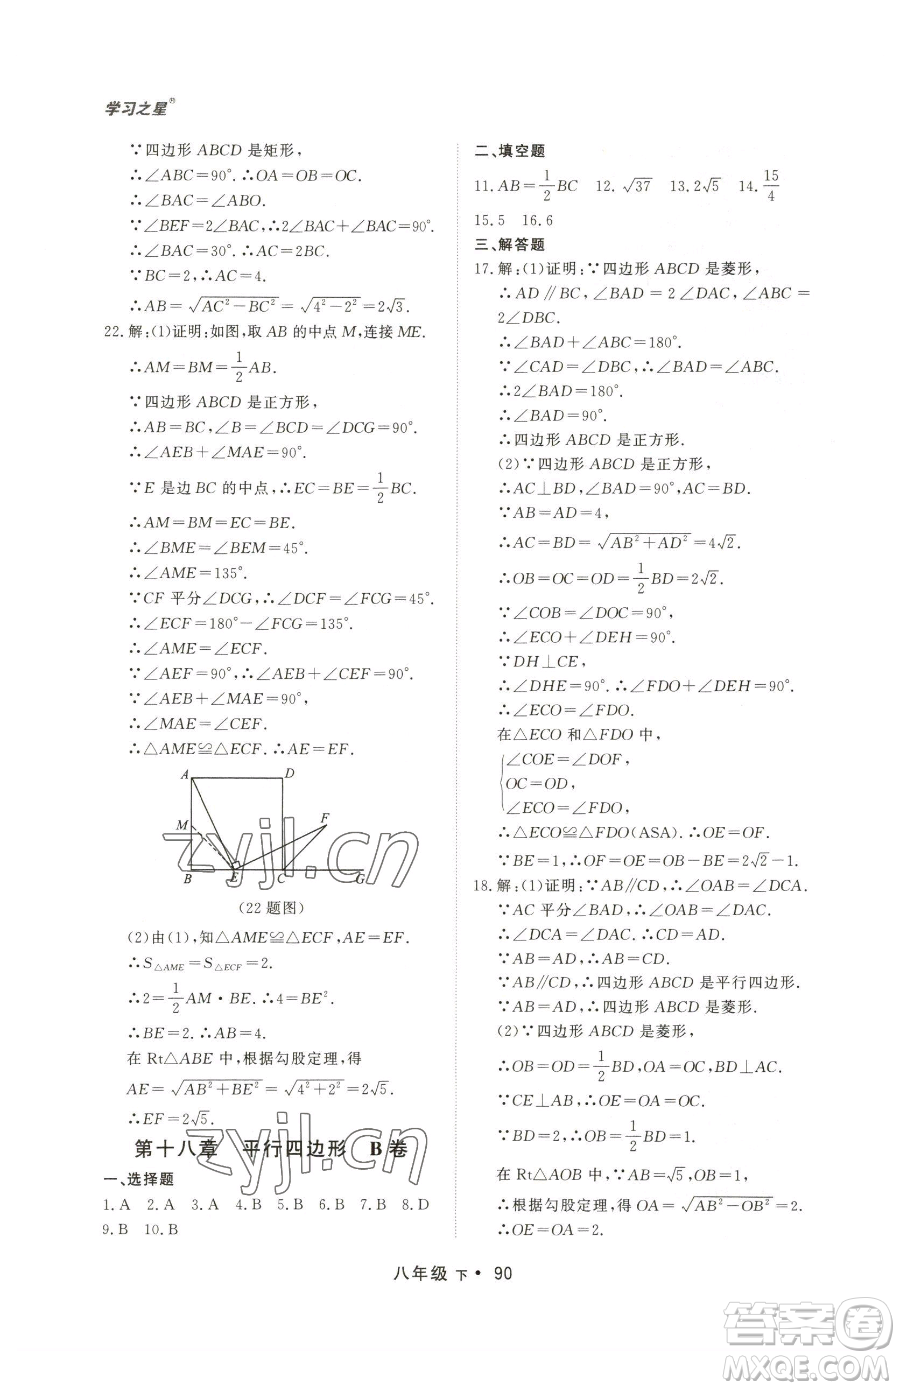 学习之星®
∵四边形 ABCD 是矩形,
∴∠ABC=90°.∴OA=OB=OC.
∴∠BAC=∠ABO.
∵∠BEF=2∠BAC,∴2∠BAC+∠BAC=90°.
∴∠BAC=30°.∴AC=2BC.
∵BC=2,∴AC=4.
∴AB=√(AC²-BC²)=√(4²-2²)=2√3.
22.解:(1)证明:如图,取 AB 的中点 M,连接 ME.
∴AM=BM=1/2AB.
∵四边形 ABCD 是正方形,
∴AB=BC,∠B=∠BCD=∠DCG=90°.
∴∠AEB+∠MAE=90°.
∵E 是边 BC 的中点,∴EC=BE=1/2BC.
∴AM=BM=EC=BE.
∴∠BME=∠BEM=45°.
∴∠AME=135°.
∵CF 平分∠DCG,∴∠DCF=∠FCG=45°.
∴∠ECF=180°-∠FCG=135°.
∴∠AME=∠ECF.
∵∠AEF=90°,∴∠AEB+∠CEF=90°.
∵∠AEB+∠MAE=90°,
∴∠MAE=∠CEF.
∴△AME≌△ECF.∴AE=EF.
A D
M F
B E C G
(22 题图)
(2)由(1),知△AME≌△ECF,AE=EF.
∴S△AME=S△ECF=2.
∴2=1/2AM·BE.∴4=BE².
∴BE=2.∴AB=4.
在 Rt△ABE 中,根据勾股定理,得
AE=√(AB²+BE²)=√(4²+2²)=2√5.
∴EF=2√5.
第十八章 平行四边形 B 卷
一、选择题
1.A 2.A 3.A 4.B 5.B 6.B 7.B 8.D
9.B 10.B
二、填空题
11.AB=1/2BC 12.√37 13.2√5 14.15/4
15.5 16.6
三、解答题
17.解:(1)证明:∵四边形 ABCD 是菱形,
∴AD∥BC,∠BAD=2∠DAC,∠ABC=
2∠DBC.
∴∠BAD+∠ABC=180°.
∵∠CAD=∠DBC,∴∠BAD=∠ABC.
∴2∠BAD=180°.
∴∠BAD=90°.
∴四边形 ABCD 是正方形.
(2)∵四边形 ABCD 是正方形,
∴AC⊥BD,∠BAD=90°,AC=BD.
∵AB=AD=4,
∴AC=BD=√(AB²+AD²)=4√2.
∴OB=OC=OD=1/2BD=2√2.
∵∠COB=∠DOC=90°,
∴∠ECO+∠DEH=90°.
∵DH⊥CE,
∴∠DHE=90°.∴∠FDO+∠DEH=90°.
∴∠ECO=∠FDO.
在△ECO 和△FDO 中,
∠COE=∠DOF,
OC=OD,
∠ECO=∠FDO,
∴△ECO≌△FDO(ASA).∴OE=OF.
∵BE=1,∴OF=OE=OB-BE=2√2-1.
18.解:(1)证明:∵AB∥CD,∴∠OAB=∠DCA.
∵AC 平分∠BAD,∴∠OAB=∠DAC.
∴∠DCA=∠DAC.∴CD=AD.
∵AB=AD,∴AB=CD.
∵AB∥CD,∴四边形 ABCD 是平行四边形.
∵AB=AD,∴四边形 ABCD 是菱形.
(2)∵四边形 ABCD 是菱形,
∴OB=OD=1/2BD,OA=OC,BD⊥AC.
∵CE⊥AB,∴OE=OA=OC.
∵BD=2,∴OB=1/2BD=1.
在 Rt△AOB 中,∵AB=√5,OB=1,
∴根据勾股定理,得 OA=√(AB²-OB²)=2.
∴OE=OA=2.
八年级 下·90
zyjl.cn
zyjl.cn
答案圈
MXQE.COM